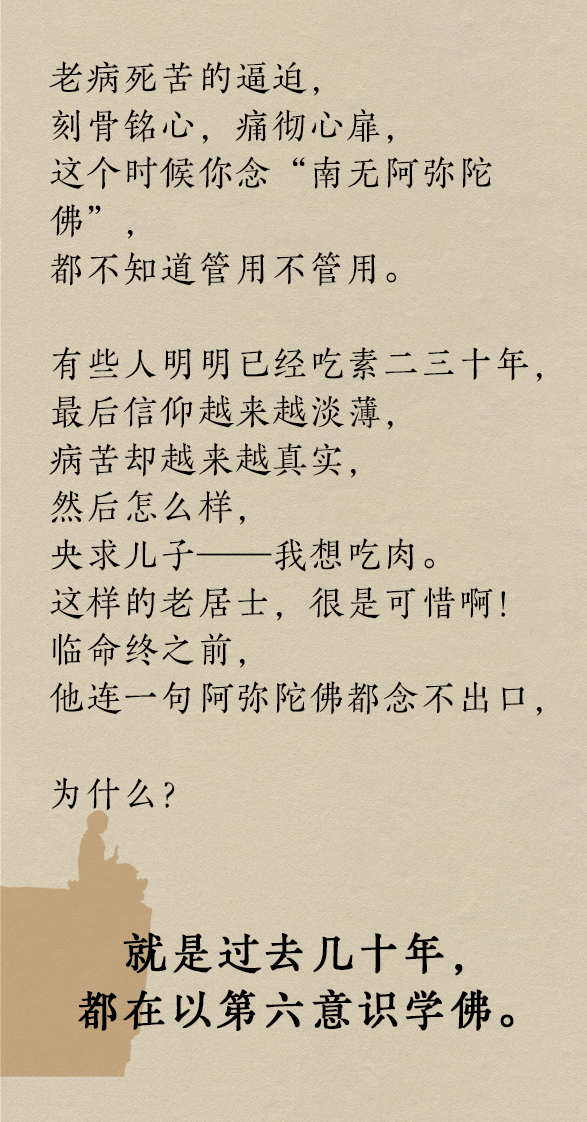 老病死苦的逼迫，
刻骨铭心，痛彻心扉，
这个时候你念“南无阿弥陀
佛”，
都不知道管用不管用。
有些人明明已经吃素二三十年，
最后信仰越来越淡薄，
病苦却越来越真实，
然后怎么样，
央求儿子——我想吃肉。
这样的老居士，很是可惜啊！
临命终之前，
他连一句阿弥陀佛都念不出口，
为什么？
就是过去几十年，
都在以第六意识学佛。